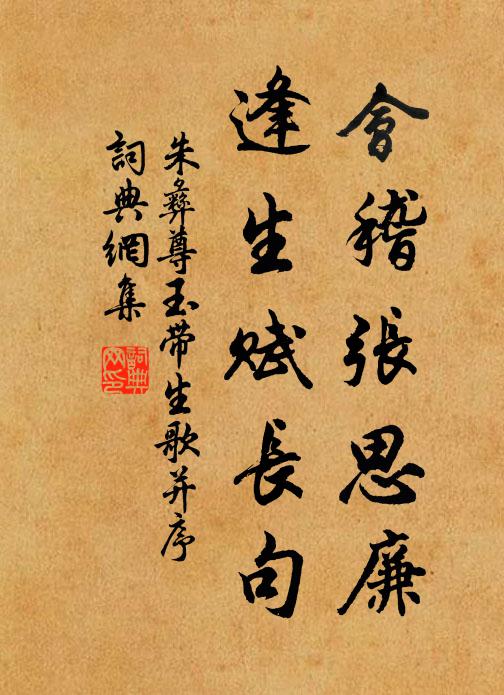 會稽張思廉
逢生賦長句
朱彝尊玉带生歌并序
詞典網集
詞典網印